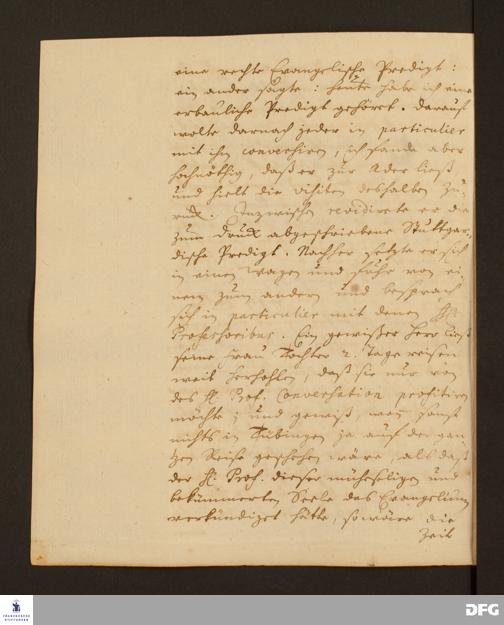 eine rechte Evangelische Predigt:
ein ander sagte: heute habe ich eine
erbauliche Predigt gehöret. darauf
wolte darnach jeder in particulier
mit ihm conversiren, ich fande aber
hochnöthig, daß er zur Ader ließ
und hielt die visiten deshalben zu-
rück. Inzwischen revidirete er die
zum Druck abgeschriebene Stuttgar-
dische Predigt. Nachher setzte er sich
in einen Wagen und fuhr von ei-
nem zum andern und besprach
sich in particulier mit denen HH.
Professoribus. Ein gewißer Herr ließ
seine Frau Tochter 2. Tage reisen
weit herhohlen, daß sie nur von
des H. Prof. Conversation profitiren
möchte; und gewiß, wenn sonst
nichts in Tübingen ja auf der gan-
tzen Reise geschehen wäre, als daß
der H. Prof. dieser mühseligen und
bekümmerten Seele das Evangelium
verkündiget hätte, so wäre die
Zeit
FRANCKESCHE
STIFTUNGEN
DFG